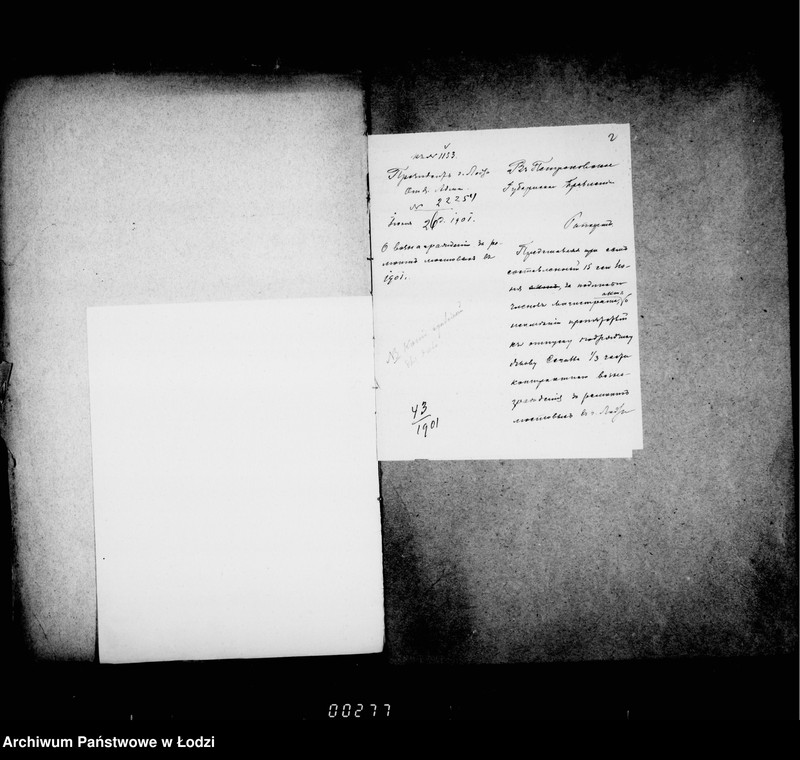 2
къ № 1133.
Президентъ г. Лодзи
№ 22254
Іюня 26 д. 1901.
О вознагражденіи за ре-
монтъ мостовыхъ въ
1901.
43
1901
Въ Петроковское
Губернское Правленіе
Рапортъ
Представляя при семъ
составленный 15 сего Iю-
ня за подписью
членовъ магистрата актъ
къ отпуску подрядчику
1/3 части
контрактнаго возна-
гражденія за ремонтъ
мостовыхъ въ г. Лодзи
00277
Archiwum Państwowe w Łodzi